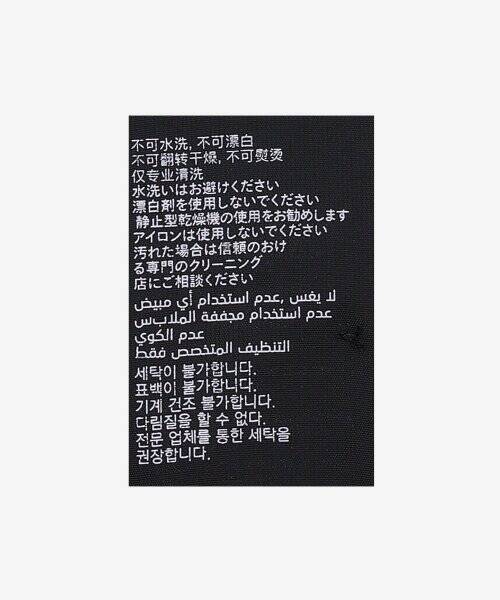 不可水洗, 不可漂白
不可翻转干燥, 不可熨烫
仅专业清洗
水洗いはお避けください
漂白剤を使用しないでください
静止型乾燥機の使用をお勧めします
アイロンは使用しないでください
汚れた場合は信頼のおけ
る専門のクリーニング
店にご相談ください
لا يغس ,عدم استخدام أي مبيض
عدم استخدام مجففة الملابس
عدم الكوي
التنظيف المتخصص فقط
세탁이 불가합니다.
표백이 불가합니다.
기계 건조 불가합니다.
다림질을 할 수 없다.
전문 업체를 통한 세탁을
권장합니다.